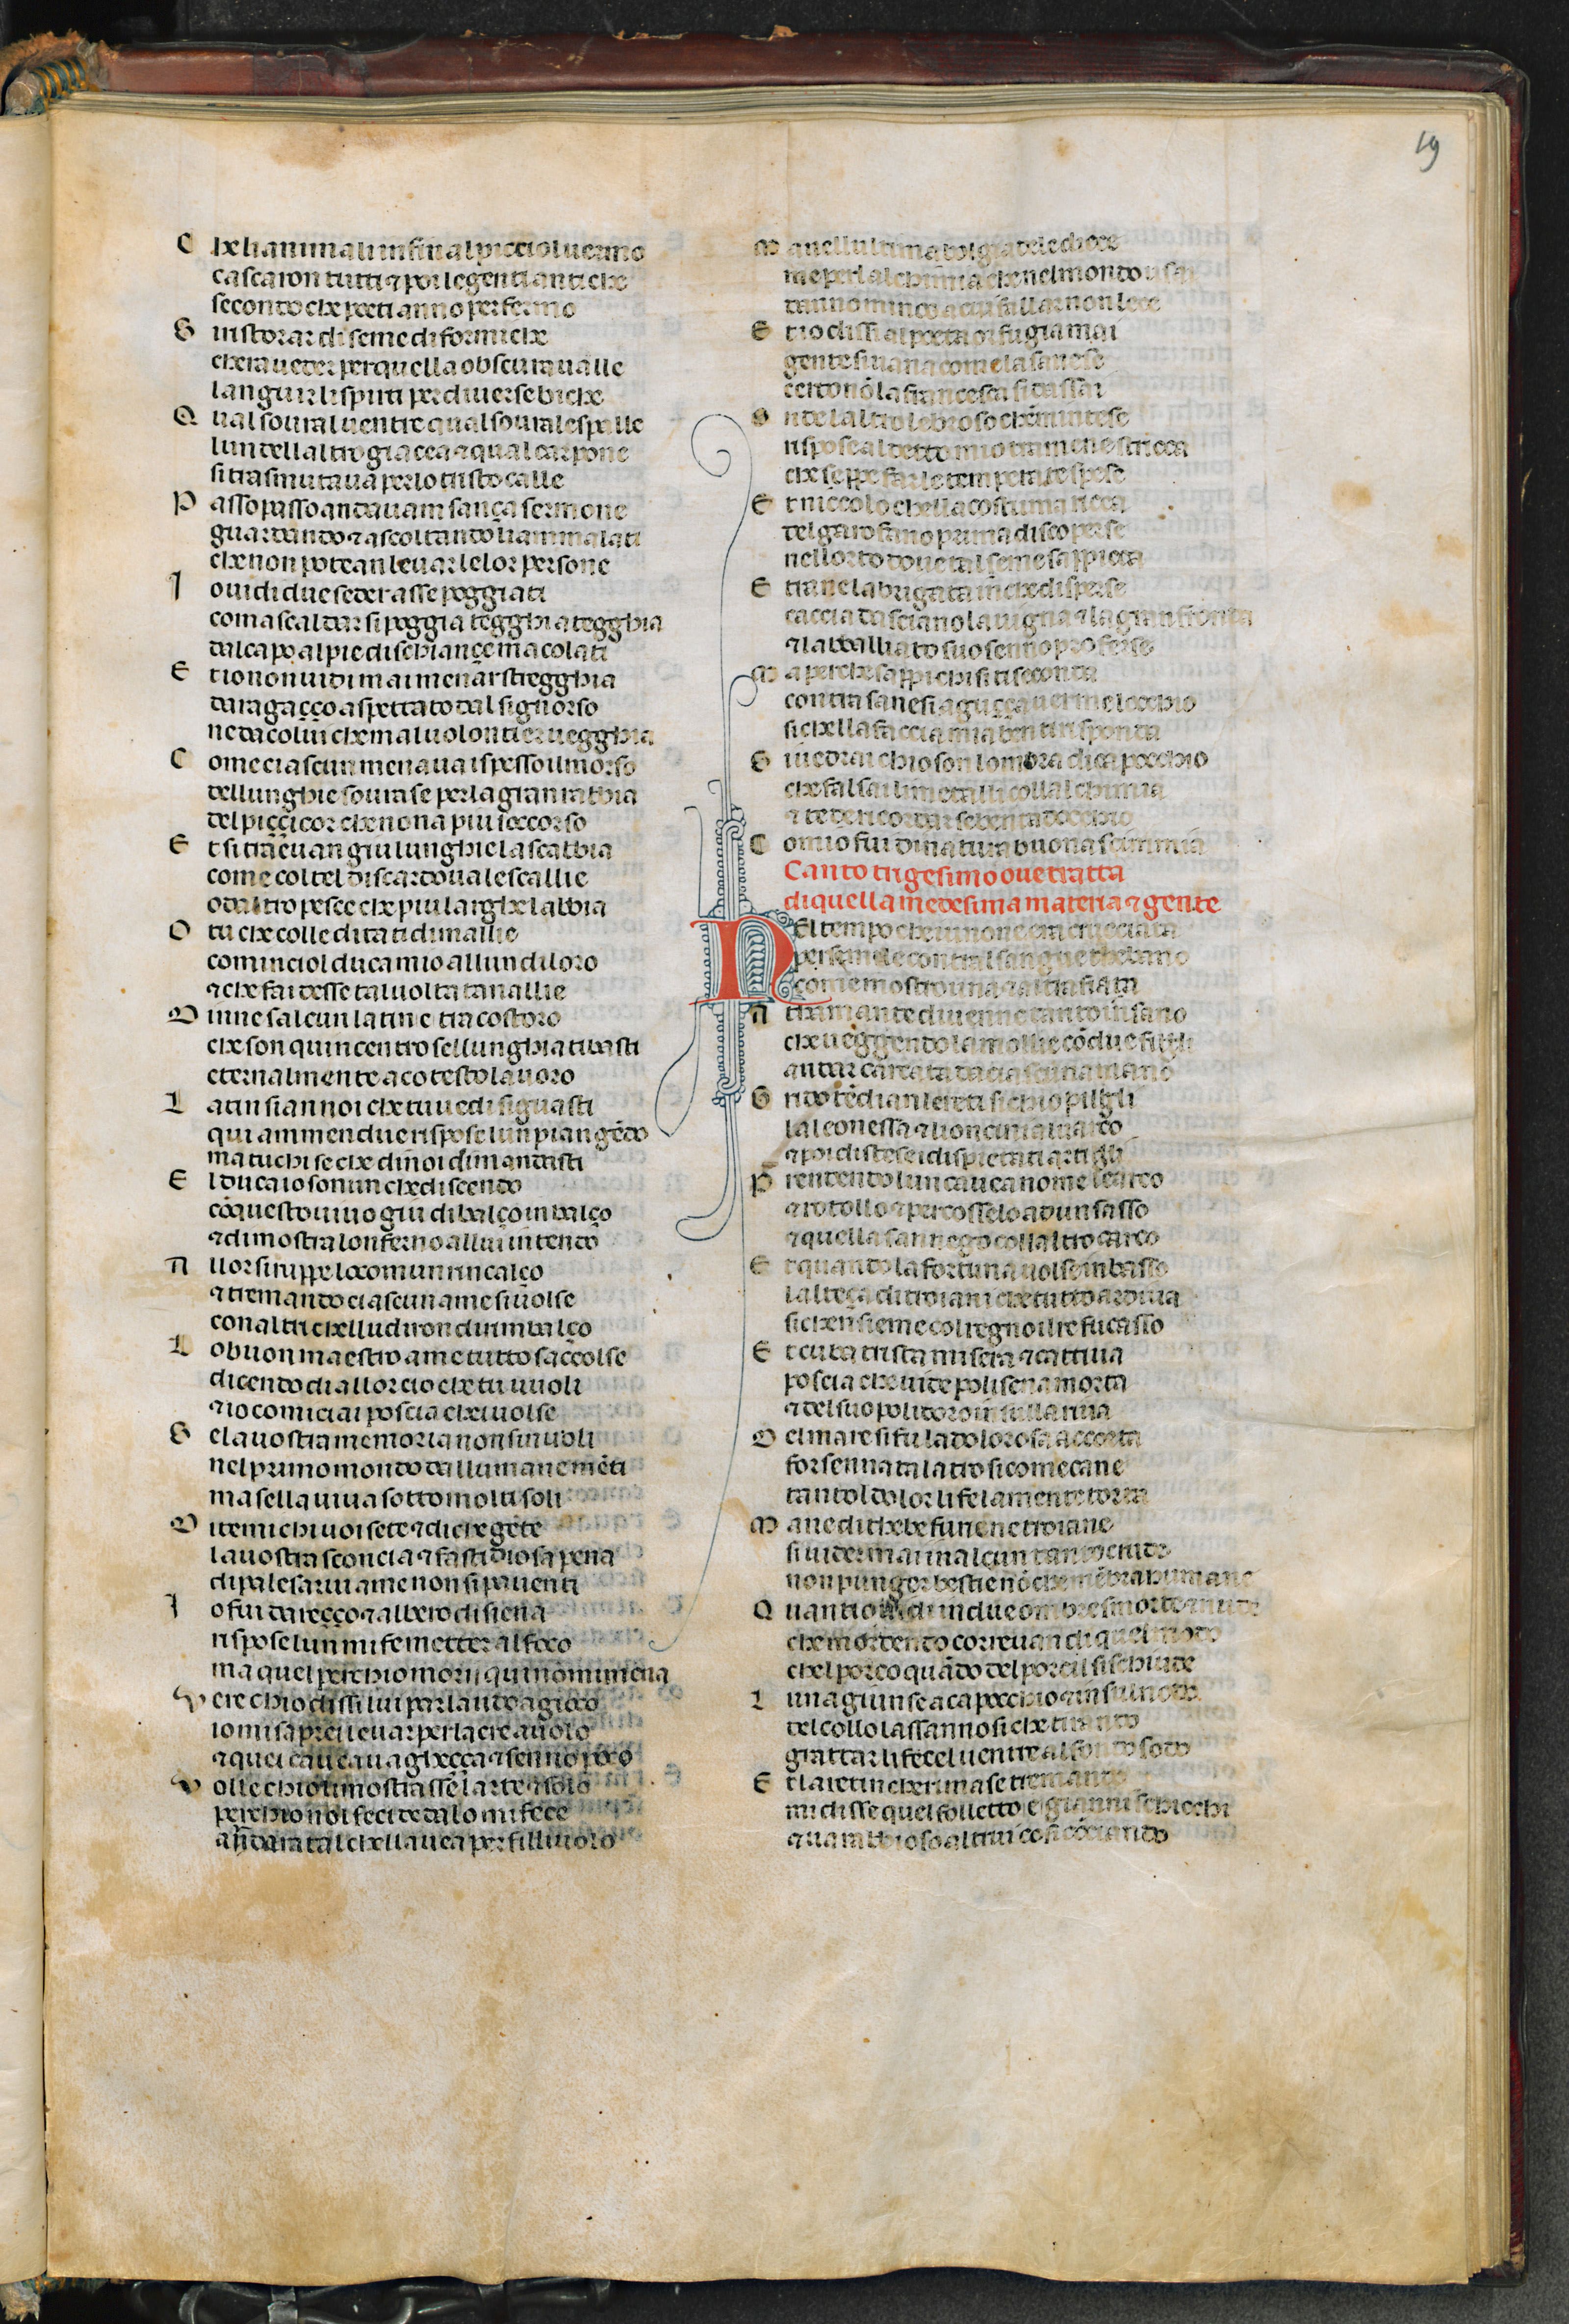 19
C he lianimali infin al picciol uermo
cascaron tutti ⁊ poi le genti antiche
secondo che poeti anno per fermo
S i ristorar di seme di formiche
chera ueder per quella obscura ualle
languir li spirti per diuerse biche
Q ual soural uentre qual soura le spalle
lun dellaltro giacea ⁊ qual carpone
si trasmutaua per lo tristo calle
P asso passo andauam sança sermone
guardando ⁊ ascoltando liammalati
che non potean leuar le lor persone
I o uidi due seder asse poggiati
coma scaldar si poggia tegghia a tegghia
dal capo al pie di schiançe macolati
E t io non uidi mai menar stregghia
da ragaçço aspettato dal signorso
ne da colui che mal uolontier uegghia
C ome ciascun menaua ispesso il morso
dellunghie soura se per la gran rabbia
del piççicor che non a piu soccorso
E t si traeuan giu lunghie la scabbia
come coltel di scardoua le scallie
o daltro pesce che piu larghe labbia
O tu che colle dita ti dimallie
cominciol duca mio allun di loro
⁊ che fai desse tal uolta tanallie
D inne salcun latin e tra costoro
che son quincentro sellunghia ti basti
eternalmente a cotesto lauoro
L atin siam noi che tu uedi si guasti
qui ammendue rispose lun piangēdo
ma tu chi se che di noi dimandasti
E l duca io son un che discendo
cō questo uiuo giu di balço in balço
⁊ di mostrar lonferno allui intendo
A llor si ruppe lo comun rincalço
⁊ tremando ciascun a me si uolse
con altri chelludiron di rimbalço
L o buon maestro a me tutto saccolse
dicendo di allor cio che tu uuoli
⁊ io cominciai poscia chei uolse
S e la uostra memoria non sinuoli
nel primo mondo dallumane mēti
ma sella uiua sotto molti soli
D itemi chi uoi sete ⁊ di che gēte
la uostra sconcia ⁊ fastidiosa pena
di palesarui a me non si pauenti
I o fui dareçço ⁊ albero di siena
rispose lun mi fe metter al foco
ma quel perchio mori qui nō mi mena
V er e chio dissi lui parlando a gioco
io mi saprei leuar per laere a uolo
⁊ quei cauea uagheçça ⁊ senno poco
V olle chio li mostrasse larte ⁊ solo
perchio nol feci dedalo mi fece
ardere a tal chellauea per filliuolo
M a nellultima bolgia dele diece
me per lalchimia che nel mondo usai
danno minos a cui fallar non lece
E t io dissi al poeta or fu gia mai
gente si uana come la sanese
certo nō la francesca si dassai
O nde laltro lebbroso che mintese
rispose al detto mio tramene stricca
che seppe far le temperate spese
E t niccolo chella costuma ricca
del garofano prima discoperse
nellorto doue tal seme sappicca
E t trane la brigata in che disperse
caccia dasciano la uigna ⁊ la gran fronda
⁊ labballiato suo senno proferse
M a perche sappi chi si ti seconda
contra sanesi aguçça uer me locchio
si chella faccia mia ben ti risponda
S i uedrai chio son lombra di capocchio
che falsai li metalli collalchimia
⁊ te dei ricordar se ben tadocchio
C omio fui di natura buona scimmia
Canto trigesimo oue tratta
di quella medesima materia ⁊ gente
NEl tempo che iunone era crucciata
per semele contral sangue thebano
come mostro una ⁊ altra fiata
A thamante diuenne tanto insano
che ueggendo la mollie cō due filli
andar carcata da ciascuna mano
G rido tēdiam le reti si chio pilli
la leonessa ⁊ lioncini al uarco
⁊ poi distese i dispietati artigli
P rendendo lun cauea nome learco
⁊ rotollo ⁊ percosselo ad un sasso
⁊ quella sannego collaltro carco
E t quando la fortuna uolse in basso
lalteça di troiani che tutto ardiua
si chensieme col regno il re fu casso
E t cuba trista misera ⁊ cattiua
poscia che uide polisena morta
⁊ del suo polidoro in sulla riua
D el mare si fu la dolorosa accorta
forsennata latro si come cane
tantol dolor li fe la mente torta
M a ne di thebe furie ne troiane
si uider mai in alcun tanto crude
non punger bestie nō che mēbra humane
Q uantio uidi in due ombre smorte ⁊ nude
che mordendo correuan di quel modo
chel porco quādo del porcil si schiude
L una giunse a capocchio ⁊ in sul nodo
del collo lassanno si che tirando
grattar li fecel uentre al fondo sodo
E t laretin che rimase tremando
mi disse quel folletto e gianni schicchi
⁊ ua rabbioso altrui cosi cōciando